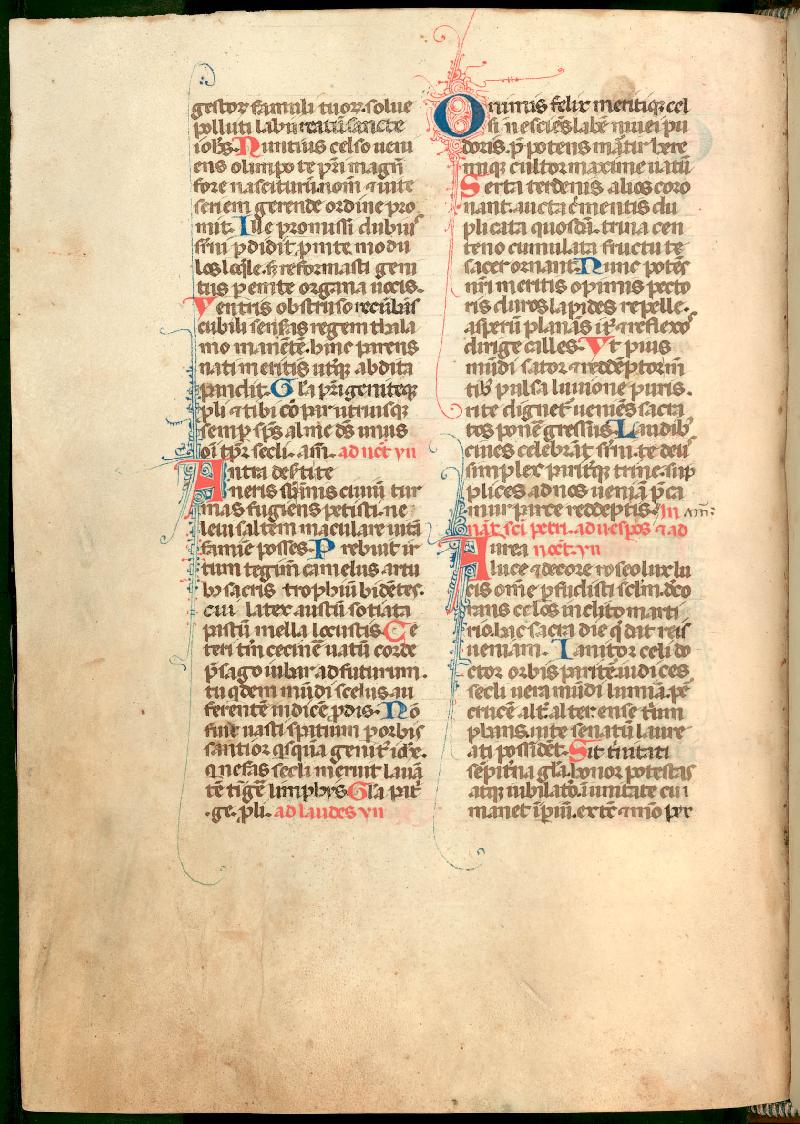 gestor famuli tuorꝝ solue
polluti labii reatū sancte
iohēs. Nuntius celso ueni
ens olimpo te pr̄i magnū
fore nasciturū nom̄ ⁊ uite
seriem gerende ordine pro
mit. Ille promissi dubius
sup̄ni ꝑdidit ꝓmte modu
los loq̄le. sȝ reformasti geni
tus ꝑemte organa uocis.
Uentris obstruso recubās
cubili senseras regem thala
mo manētē. hinc parens
nati meritis utq̄ꝫ abdita
pandit. Gl̄a pr̄i geniteqꝫ
ꝓli ⁊ tibi cō par utriusqꝫ
semꝑ sp̄s alme ds̄ unus
oī tꝑr̄ secli. am̄. ad noct̄ yn̄
Antra des̄ti te
neris sb̄ annis ciuiū tur
mas fugiens petisti. ne
leui saltem maculare uitā
famine posses. Prebuit ir
tum tegim̄ camelus artu
bȝ sacris trophiū bidētes.
cui latex austū sotiata
pastū mella locustis. Ce
teri tm̄ cecine uatū corde
p̄sago iubar adfuturum.
tu qdem mūdi scelus au
ferentē indicē ꝓdis. Nō
fuit uasti spatium ꝑ orbis
santior q̄sq̄ā genit̄ ioh̄e.
q nefas secli meruit lauā
tē tīgē limphys Gl̄a pat̄
.ge. ꝓli. ad laudes yn̄
Onimis felix meritiqꝫ cel
si nesciēs labē niuei pu
doris. p̄ potens martir here
miqꝫ cultor maxime uatū
Serta terdenis alios coro
nant. aucta c̄mentis du
plicata quosdā. trina cen
teno cumulata fructu te
sacer ornant. Nunc potēs
nr̄i meritis opimis pecto
ris duros lapides repelle.
asperū planās it̄ ⁊ reflexos
dirige calles. Ut pius
mūdi sator ⁊ reddēptor m̄
tibȝ pulsa liuione puris.
rite dignet̄ ueniēs sacra
tos ponē gressus. Laudibȝ
ciues celebrāt sup̄ni te deus
simplex parit̄qꝫ trine. sup
plices ad nos ueniā p̄ca
mur parce reddeptis. In am̄:
nat̄ sc̄i petri. ad uesꝑos ⁊ ad
Aurea noct̄. yn̄
luce ⁊ decore roseo lux lu
cis om̄e ꝑfudisti sclm̄. deco
rans celos inclito marti
rio. hac sacra die q̄ dat reis
ueniam. Ianitor celi do
ctor orbis parit̄ iudices
secli uera mūdi lumīa. ꝑ
crucē alt̄. alter ense trium
phans. uite senatū laure
ati possidēt. Sit trinitati
sēpit̄na gl̄a. honor potestas
atqꝫ iubilatō. ī unitate cui
manet īꝑiū. ex tc̄ ⁊ m̄o ꝑer